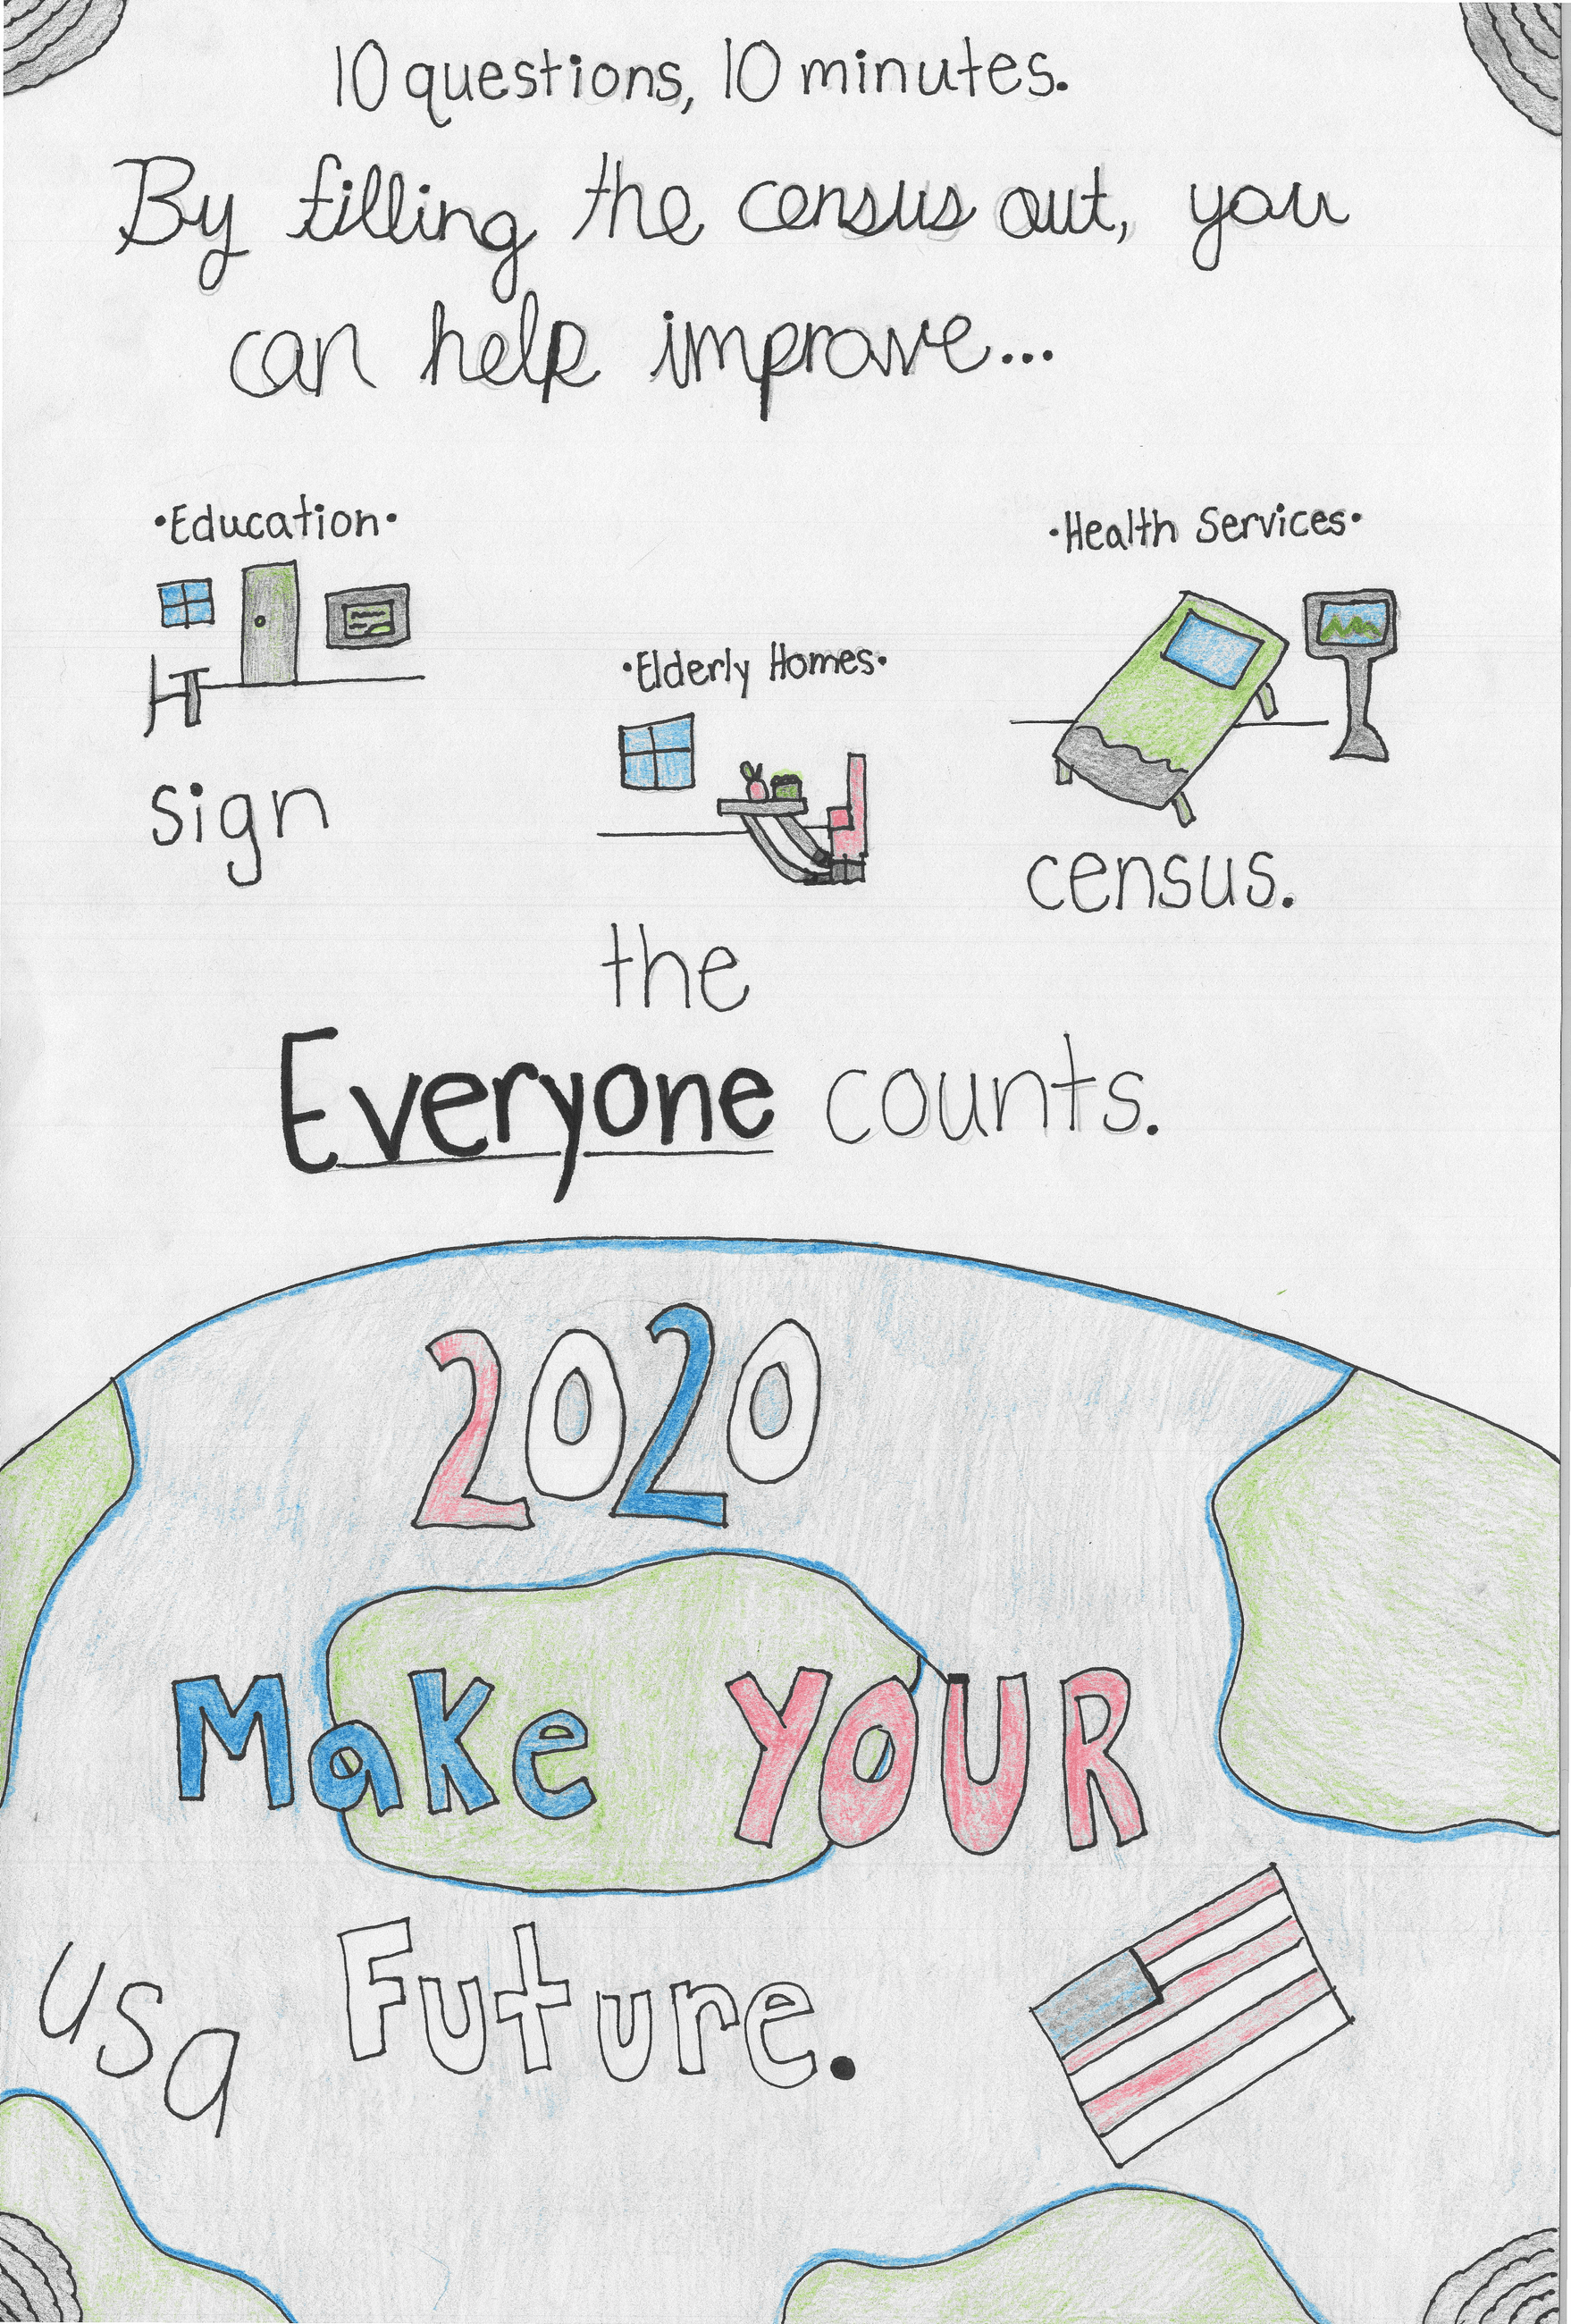 10 questions, 10 minutes.
By filling the census out, you
can help improve...
•Education•
•Health Services•
•Elderly Homes•
sign
the
census.
Everyone counts.
2020
Make YOUR
Future.
usa